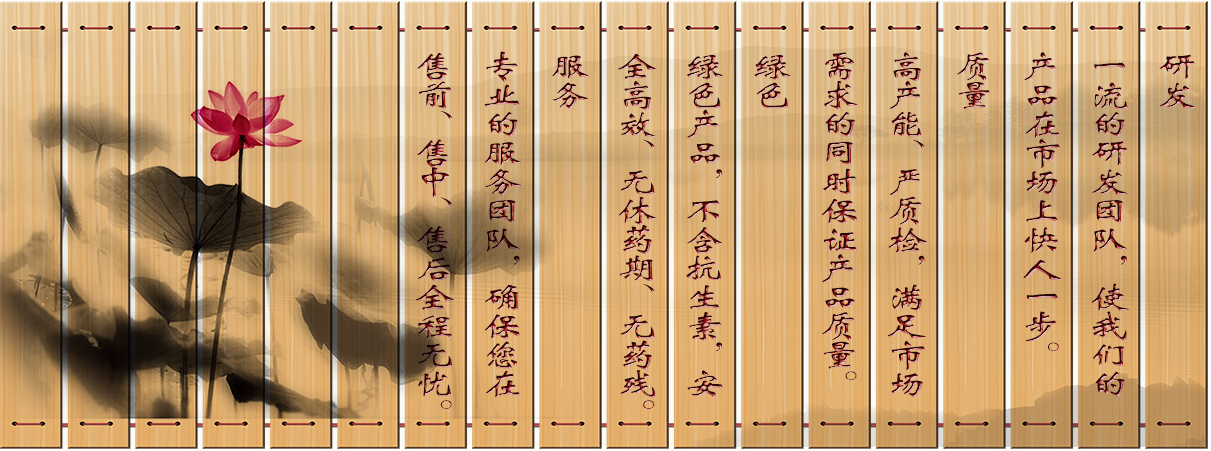 研发
一流的研发团队，使我们的
产品在市场上快人一步。
质量
高产能、严质检，满足市场
需求的同时保证产品质量。
绿色
绿色产品，不含抗生素，安
全高效、无休药期、无药残。
服务
专业的服务团队，确保您在
售前、售中、售后全程无忧。